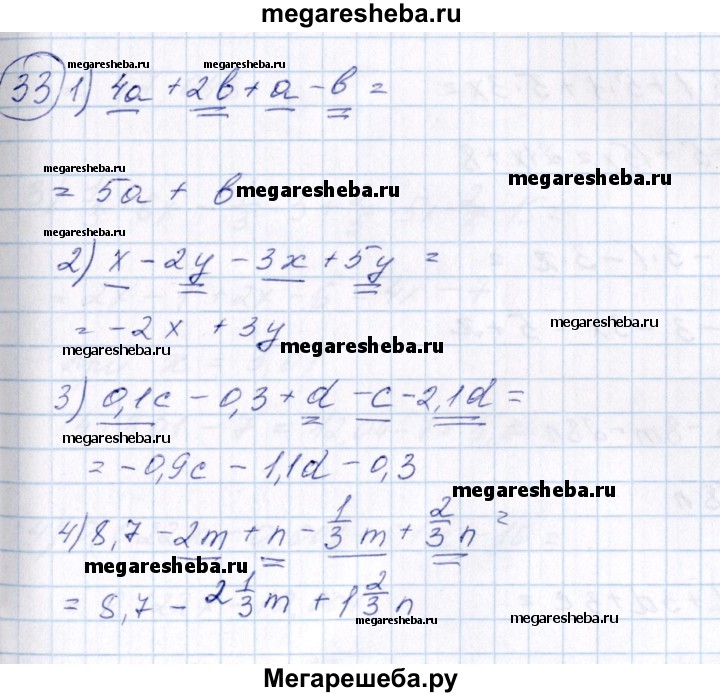 megaresheba.ru
megaresheba.ru megaresheba.ru
33 1) 4a + 2b + a - b =
megaresheba.ru
megaresheba.ru
= 5a + b megaresheba.ru
megaresheba.ru
2) x - 2y - 3x + 5y =
megaresheba.ru
= -2x + 3y
megaresheba.ru megaresheba.ru
3) 0,1c - 0,3 + d - c - 2,1d =
megaresheba.ru
= -0,9c - 1,1d - 0,3
megaresheba.ru
4) 8,7 - 2m + n - 1/3 m + 2/3 n =
megaresheba.ru
= 8,7 - 2 1/3 m + 1 2/3 n
megaresheba.ru
megaresheba.ru
Мегарешеба.ру